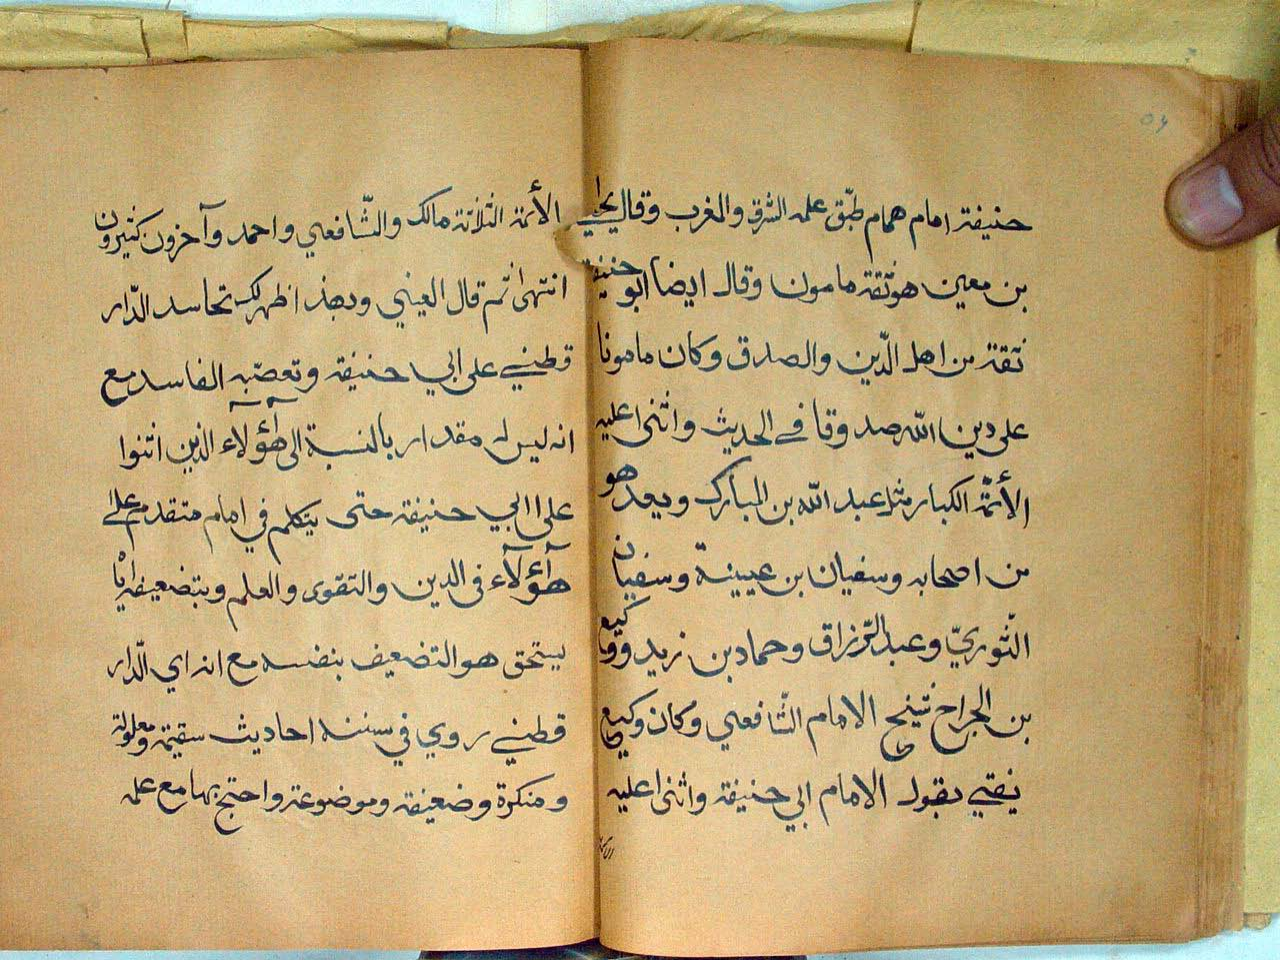 ٥٦
حنيفة امام همام طبّق علمه الشرق والمغرب وقال يحيى
بن معين هو ثقة مامون وقال ايضا ابو حنيفة
ثقة من اهل الدّين والصدق وكان مامونا
على دين الله صدوقا في الحديث واثنى عليه
الأئمّة الكبار مثل عبد الله بن المبارك ويعد هو
من اصحابه وسفيان بن عيينة وسفيان
الثّوريّ وعبد الرّزاق وحماد بن زيد ووكيع
بن الجراح شيخ الامام الشّافعي وكان وكيع
يفتي بقول الامام ابي حنيفة واثنى عليه
الأئمة الثّلاثة مالك والشّافعي واحمد وآخرون كثيرون
انتهى ثم قال العيني وبهذا ظهر لك تحاسد الدّار
قطني على ابي حنيفة وتعصّبه الفاسد مع
انه ليس له مقدار بالنسبة الى هؤلاء الذين اثنوا
على ابي حنيفة حتى يتكلم في امام متقدم على
هؤلآء في الدين والتقوى والعلم وبتضعيفه ايّا
يستحق هو التضعيف بنفسه مع انه اي الدّار
قطني روي في سننه احاديث سقيمة ومعلولة
ومنكرة وضعيفة وموضوعة واحتج بها مع علمه